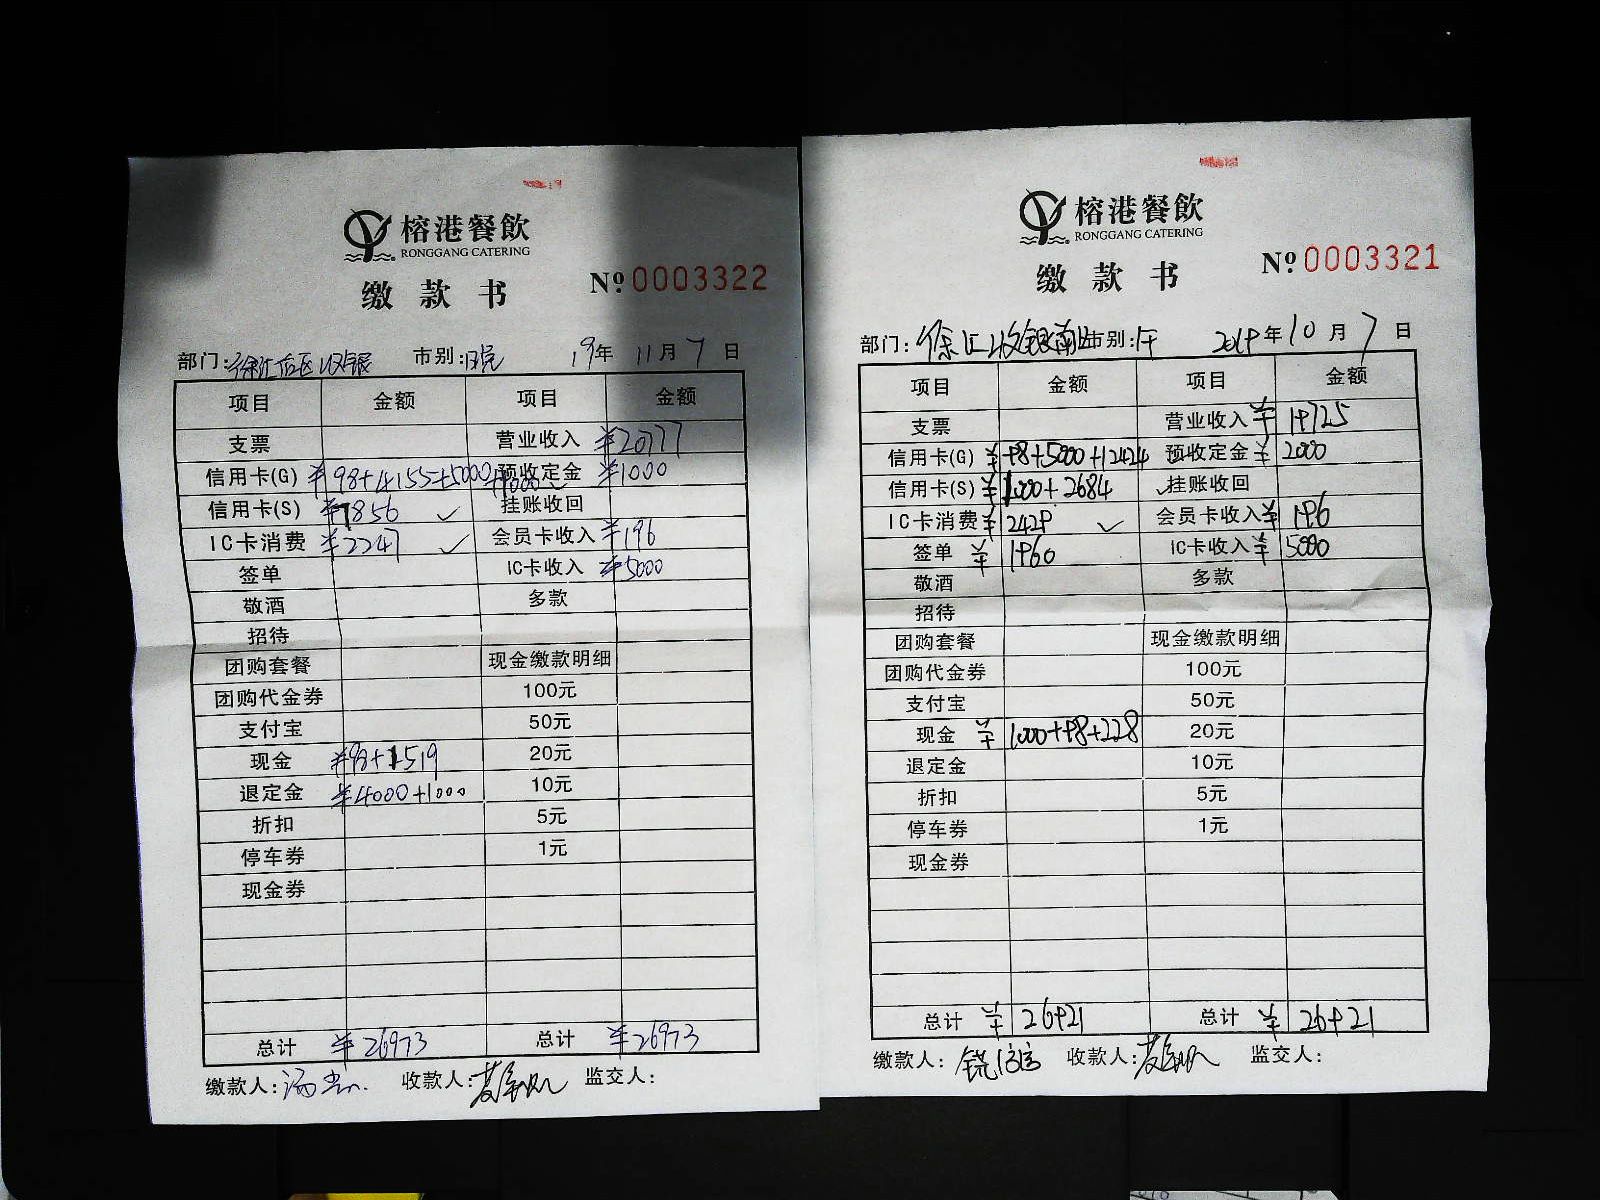 榕港餐飲
RONGGANG CATERING
缴款书
№ 0003322
部门: 徐汇店区收银 市别: 晚 19年 11月 7日
项目 金额 项目 金额
支票 营业收入 ¥20777
信用卡(G) ¥98+4155+5000+1000 预收定金 ¥1000
信用卡(S) ¥7856 ✓ 挂账收回
IC卡消费 ¥2247 ✓ 会员卡收入 ¥196
签单 IC卡收入 ¥5000
敬酒 多款
招待
团购套餐 现金缴款明细
团购代金券 100元
支付宝 50元
现金 ¥98+1519 20元
退定金 ¥4000+1000 10元
折扣 5元
停车券 1元
现金券
总计 ¥26973 总计 ¥26973
缴款人: 收款人: 监交人:
榕港餐飲
RONGGANG CATERING
缴款书
№ 0003321
部门: 徐汇收银南 市别: 午 2019年 10月 7日
项目 金额 项目 金额
支票 营业收入 ¥19725
信用卡(G) ¥98+5000+12424 预收定金 ¥2000
信用卡(S) ¥1000+2684 ✓ 挂账收回
IC卡消费 ¥2429 ✓ 会员卡收入 ¥196
签单 ¥1960 IC卡收入 ¥5000
敬酒 多款
招待
团购套餐 现金缴款明细
团购代金券 100元
支付宝 50元
现金 ¥1000+98+228 20元
退定金 10元
折扣 5元
停车券 1元
现金券
总计 ¥26921 总计 ¥26921
缴款人: 收款人: 监交人: